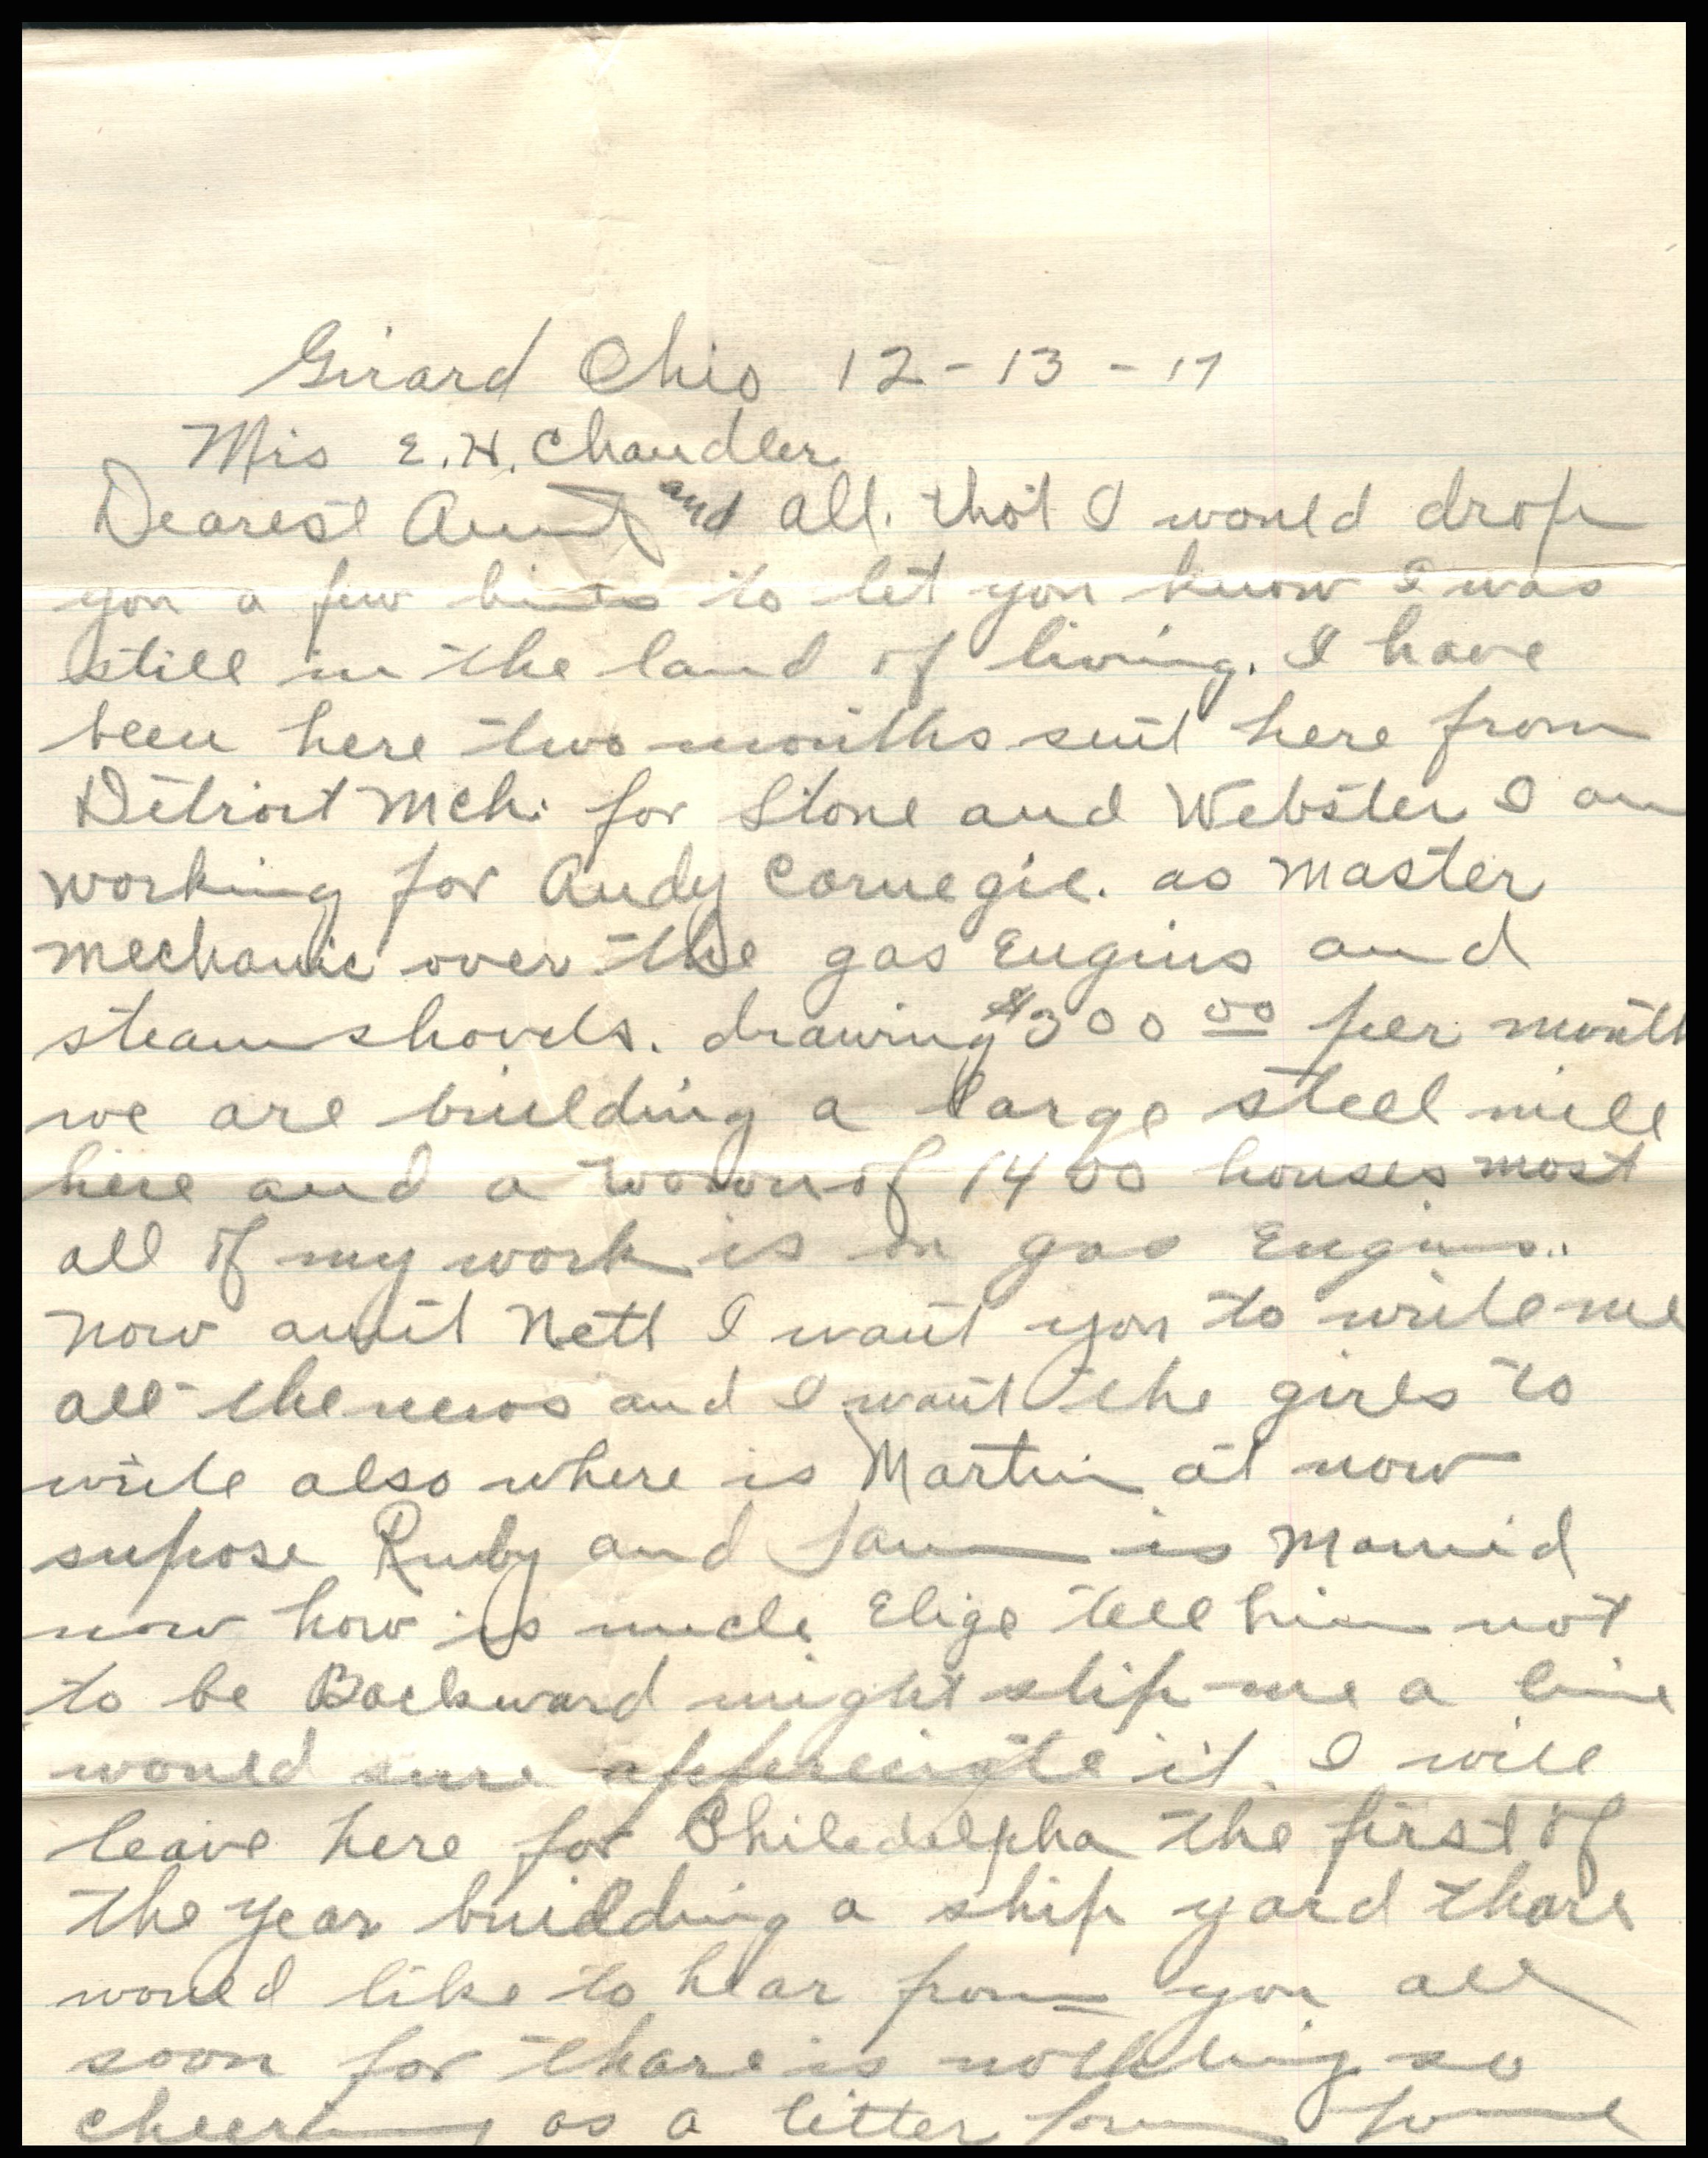 Girard Ohio 12-13-17
Mrs E.H. Chandler
Dearest Aunt and all. thot I would drop
you a few lines to let you know I was
still in the land of living. I have
been here two months sent here from
Detroit Mch. for Stone and Webster I am
working for Andy Carnegie. as master
mechanic over the gas Engins and
steam shovels. drawing $300 00 per month
we are building a large steel mill
here and a town of 1400 houses most
all of my work is on gas Engins..
now aunt Nett I want you to write me
all the news and I want the girls to
write also where is Martin at now
supose Ruby and is Married
now how is uncle Elige tell him not
to be Backward might slip me a line
would sure appreciate it. I will
leave here for Philadelpha the first of
the year building a ship yard thare
would like to hear from you all
soon for thare is nothing so
cheering as a letter from